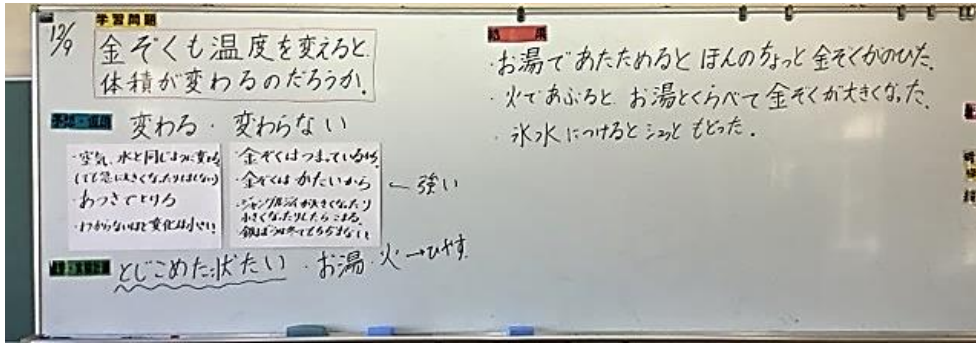 12/9
学習問題
金ぞくも温度を変えると
体積が変わるのだろうか。
予想・仮説
変わる・変わらない
・空気、水と同じように変わる
(でも急に大きくなったりはしない)
・あつさでとける
・わからないほど変化は小さい
・金ぞくはつまっているから
・金ぞくはかたいから
・ジャングルジムが大きくなったり
小きくなったりしたらこまる。
← 強い
とじこめた状たい ・お湯・火→ひやす
結果
・お湯であたためるとほんのちょっと金ぞくがのびた。
・火であぶると お湯とくらべて金ぞくが大きくなった。
・氷水につけるとシュッともどった。